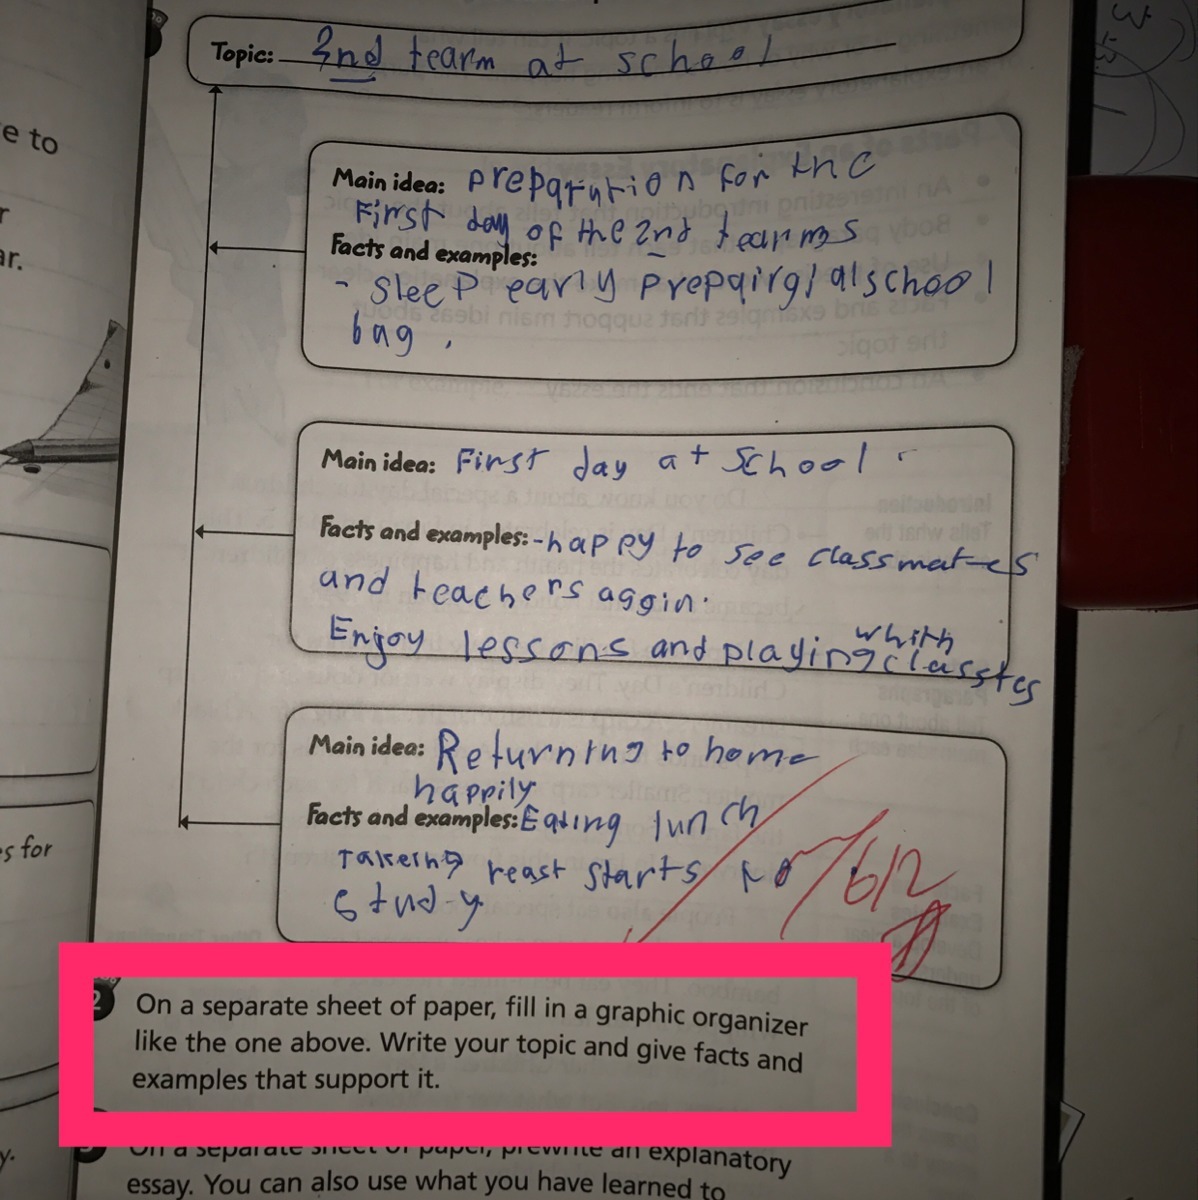 Topic: 2nd tearm at school
e to
r
ar.
Main idea: preparution for the
First day of the 2nd tearms
Facts and examples:
- sleep early prepairg
school
bag.
Main idea: First day at school
Facts and examples: - happy to see classmates
and teachers aggin.
Enjoy lessons and playing whith
Main idea: Returning to home
happily
Facts and examples: Eating lunch
reast starts to
study
s for
6/2
2 On a separate sheet of paper, fill in a graphic organizer
like the one above. Write your topic and give facts and
examples that support it.
y.
On a separate sheet of paper, prewrite an explanatory
essay. You can also use what you have learned to